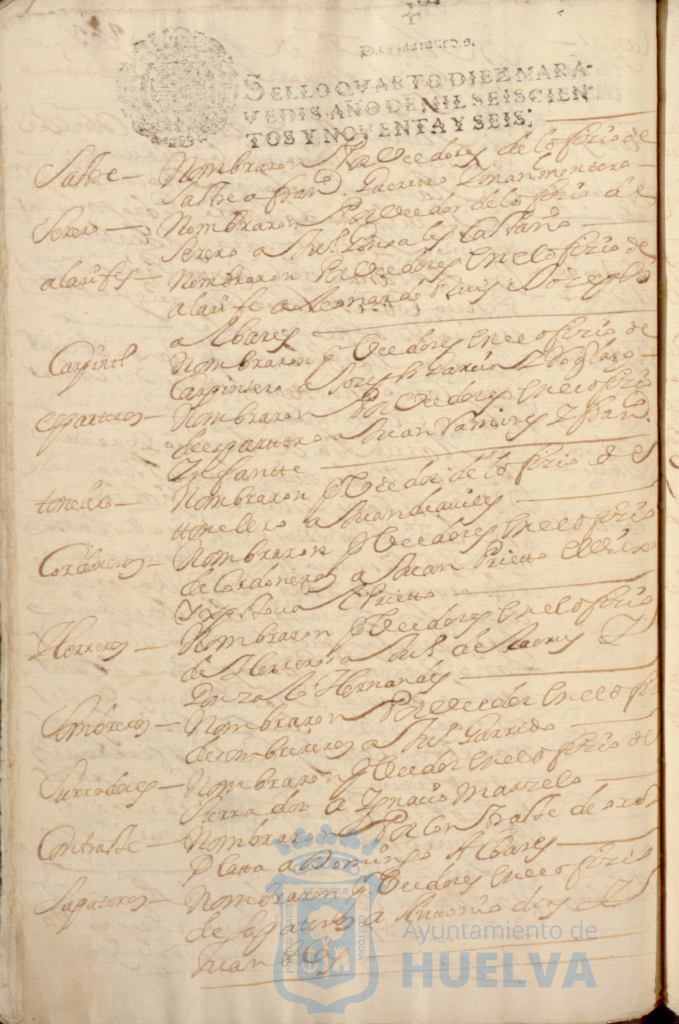 Diez maravedis.
SELLO QVARTO DIEZ MARA-
VEDIS AÑO DE MIL SEISCIEN-
TOS Y NOVENTA Y SEIS.
Sastre — Nombraron Por Veedores de lofisio de
Sastre a fran.co Guerrero Y Juan montero
Serero — Nombraron Por Veedor de lofisio de
Serero a Ju.o Gonsales Castaño
alarifes — Nombraron Por Veedores En el ofisio de
alarife a Leonardo Ruis i Joseph
a Albares
Carpint.o — Nombraron p.r Veedores En el ofisio de
Carpintero a Joseph Garcia
esparteros — Nombraron Por Veedores En el ofisio
de espartero a Juan Ramires Y fran.co
Ynfantte
tonelero — Nombraron p.r Veedor de lofisio de
ttonelero a Juan de
Cordoneros — Nombraron p.r Veedores En el ofisio
de Cordoneros a Juan Prietto
Prietto
Herreros — Nombraron p.r Veedores En el ofisio
de Herreros a Ju.o de Y
Gonzalo Hernandes
Sombreros — Nombraron Por Veedor En el ofi
de sombrereros a Ju.o Garrido
Surradores — Nombraron p.r Veedor En el ofisio de
Surrador a Ygnacio Marzelo
Contraste — Nombraron Por Contraste de oro
Platta a Domingo Albares
Sapateros — Nombraron p.r Veedores En el ofisio
de Sapatero a Anttonio Y
Juan
Ayuntamiento de
HUELVA
PORTUS MARIS
ET TERRAE
CUSTODIA